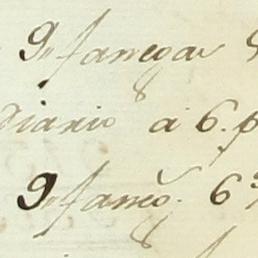 9. fanegas
diario a 6. p
9. fanes. 6